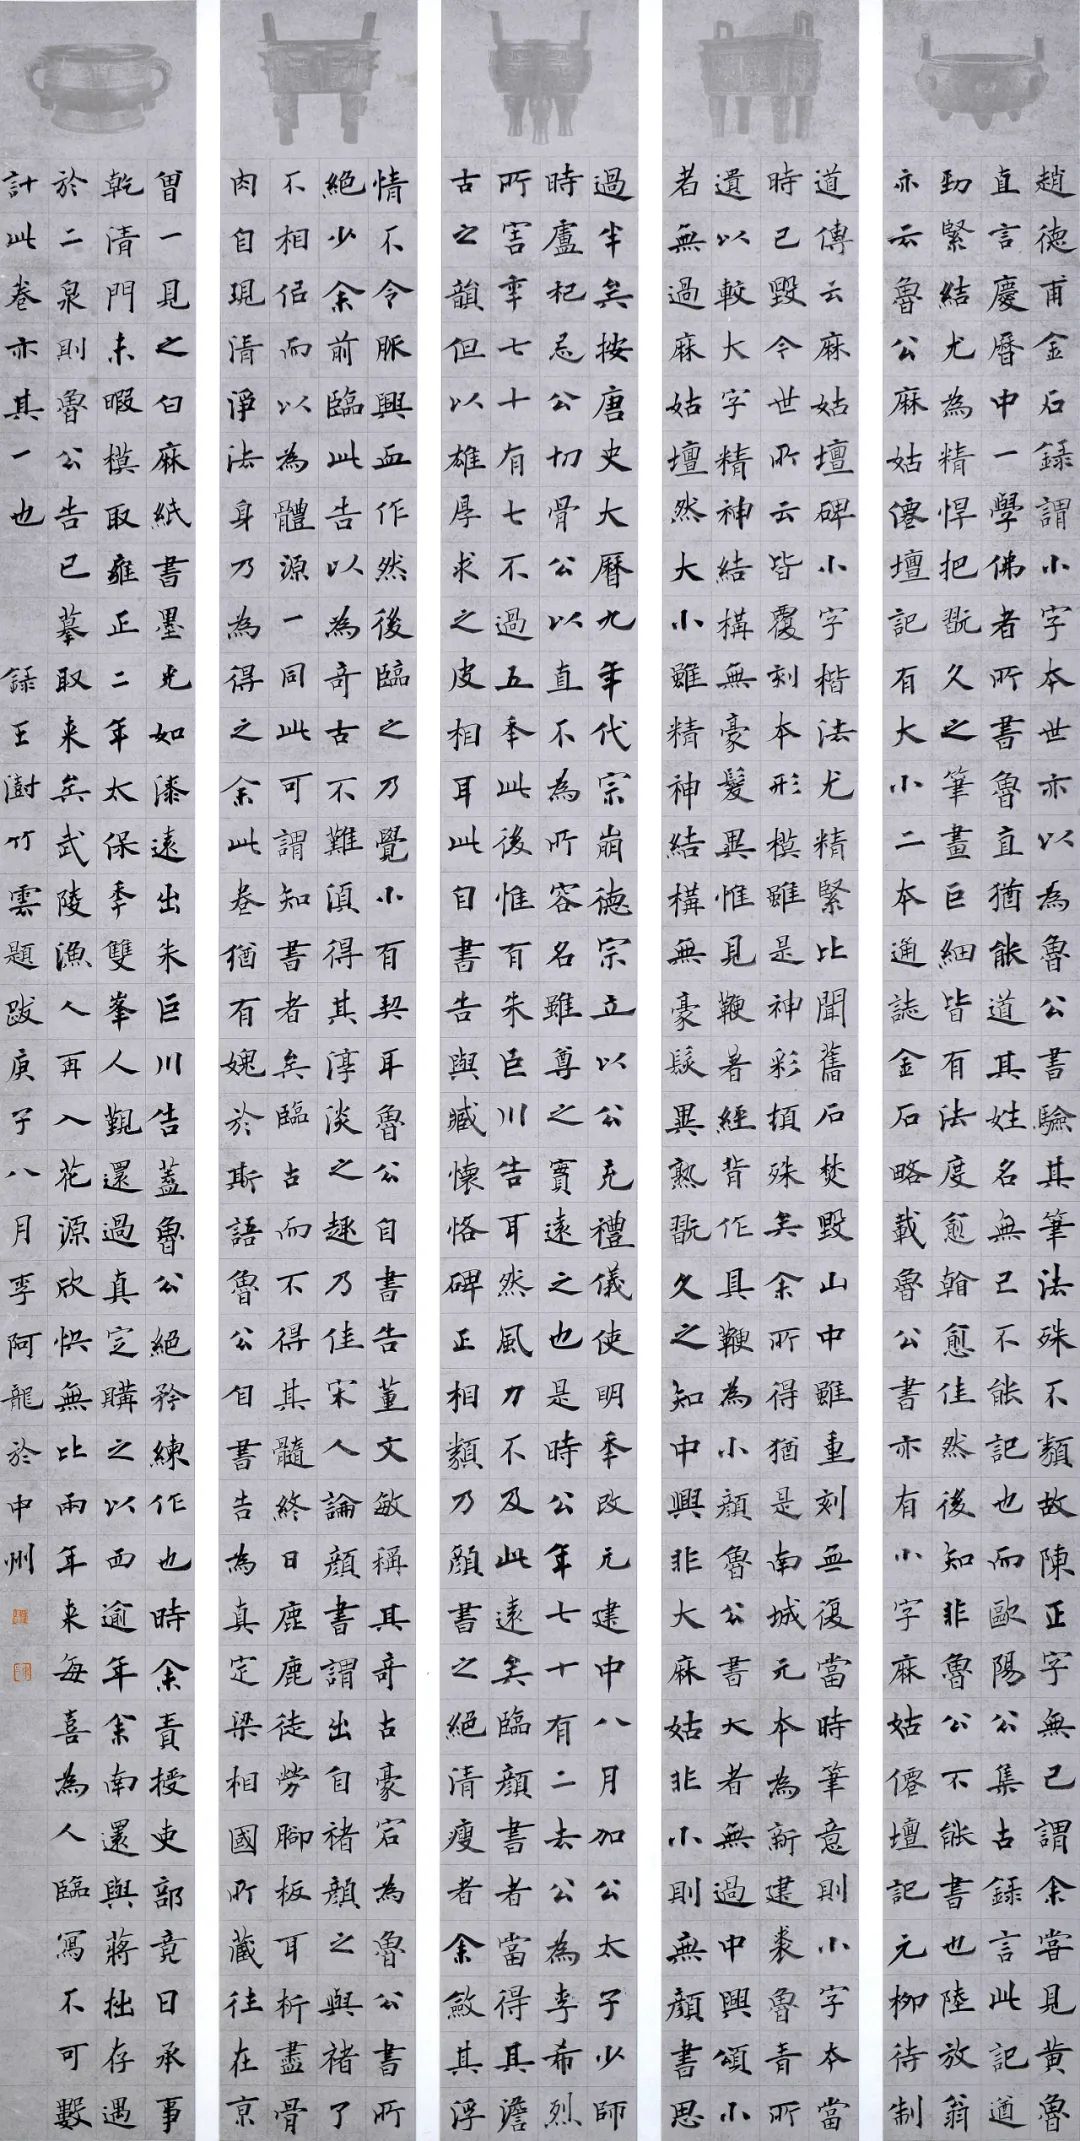 趙德甫金石錄謂小字本世亦以為魯公書驗其筆法殊不類故陳正字無己謂余嘗見黃魯
直言慶曆中一學佛者所書魯直猶能道其姓名無己不能記也而歐陽公集古錄言此記遒
勁緊結尤為精悍把翫久之筆畫巨細皆有法度愈翰愈佳然後知非魯公不能書也陸放翁
亦云魯公麻姑僊壇記有大小二本通誌金石略載魯公書亦有小字麻姑僊壇記元柳待制
道傳云麻姑壇碑小字楷法尤精緊比聞舊石焚毀山中雖重刻無復當時筆意則小字本當
時已毀今世所云皆覆刻本形模雖是神彩頓殊矣余所得猶是南城元本為新建裘魯青所
遺以較大字精神結構無豪髮異惟見鞭著經背作具鞭為小顏魯公書大者無過中興頌小
者無過麻姑壇然大小雖精神結構無豪髮異熟翫久之知中興非大麻姑非小則無顏書思
過半矣按唐史大曆九年代宗崩德宗立以公充禮儀使明年改元建中八月加公太子少師
時盧杞忌公切骨公以直不為所容名雖尊之實遠之也是時公年七十有二去公為李希烈
所害年七十有七不過五年此後惟有朱巨川告耳然風力不及此遠矣臨顏書者當得其澹
古之韻但以雄厚求之皮相耳此自書告與臧懷恪碑正相類乃顏書之絕清瘦者余斂其浮
情不令脈興血作然後臨之乃覺小有契耳魯公自書告董文敏稱其奇古豪宕為魯公書所
絕少余前臨此告以為奇古不難須得其淳淡之趣乃佳宋人論顏書謂出自褚顏之與褚了
不相佀而以為體源一同此可謂知書者矣臨古而不得其髓終日鹿鹿徒勞腳板耳析盡骨
肉自現清淨法身乃為得之余此卷猶有媿於斯語魯公自書告為真定梁相國所藏往在京
曾一見之白麻紙書墨光如漆遠出朱巨川告蓋魯公絕矜練作也時余責授吏部竟日承事
乾清門未暇模取雍正二年太保年雙峯人覲還過真定購之以西逾年余南還與蔣拙存遇
於二泉則魯公告已摹取来矣武陵漁人再入花源欣快無比兩年来每喜為人臨寫不可數
計此卷亦其一也 錄王澍竹雲題跋庚子八月李阿龍於中州